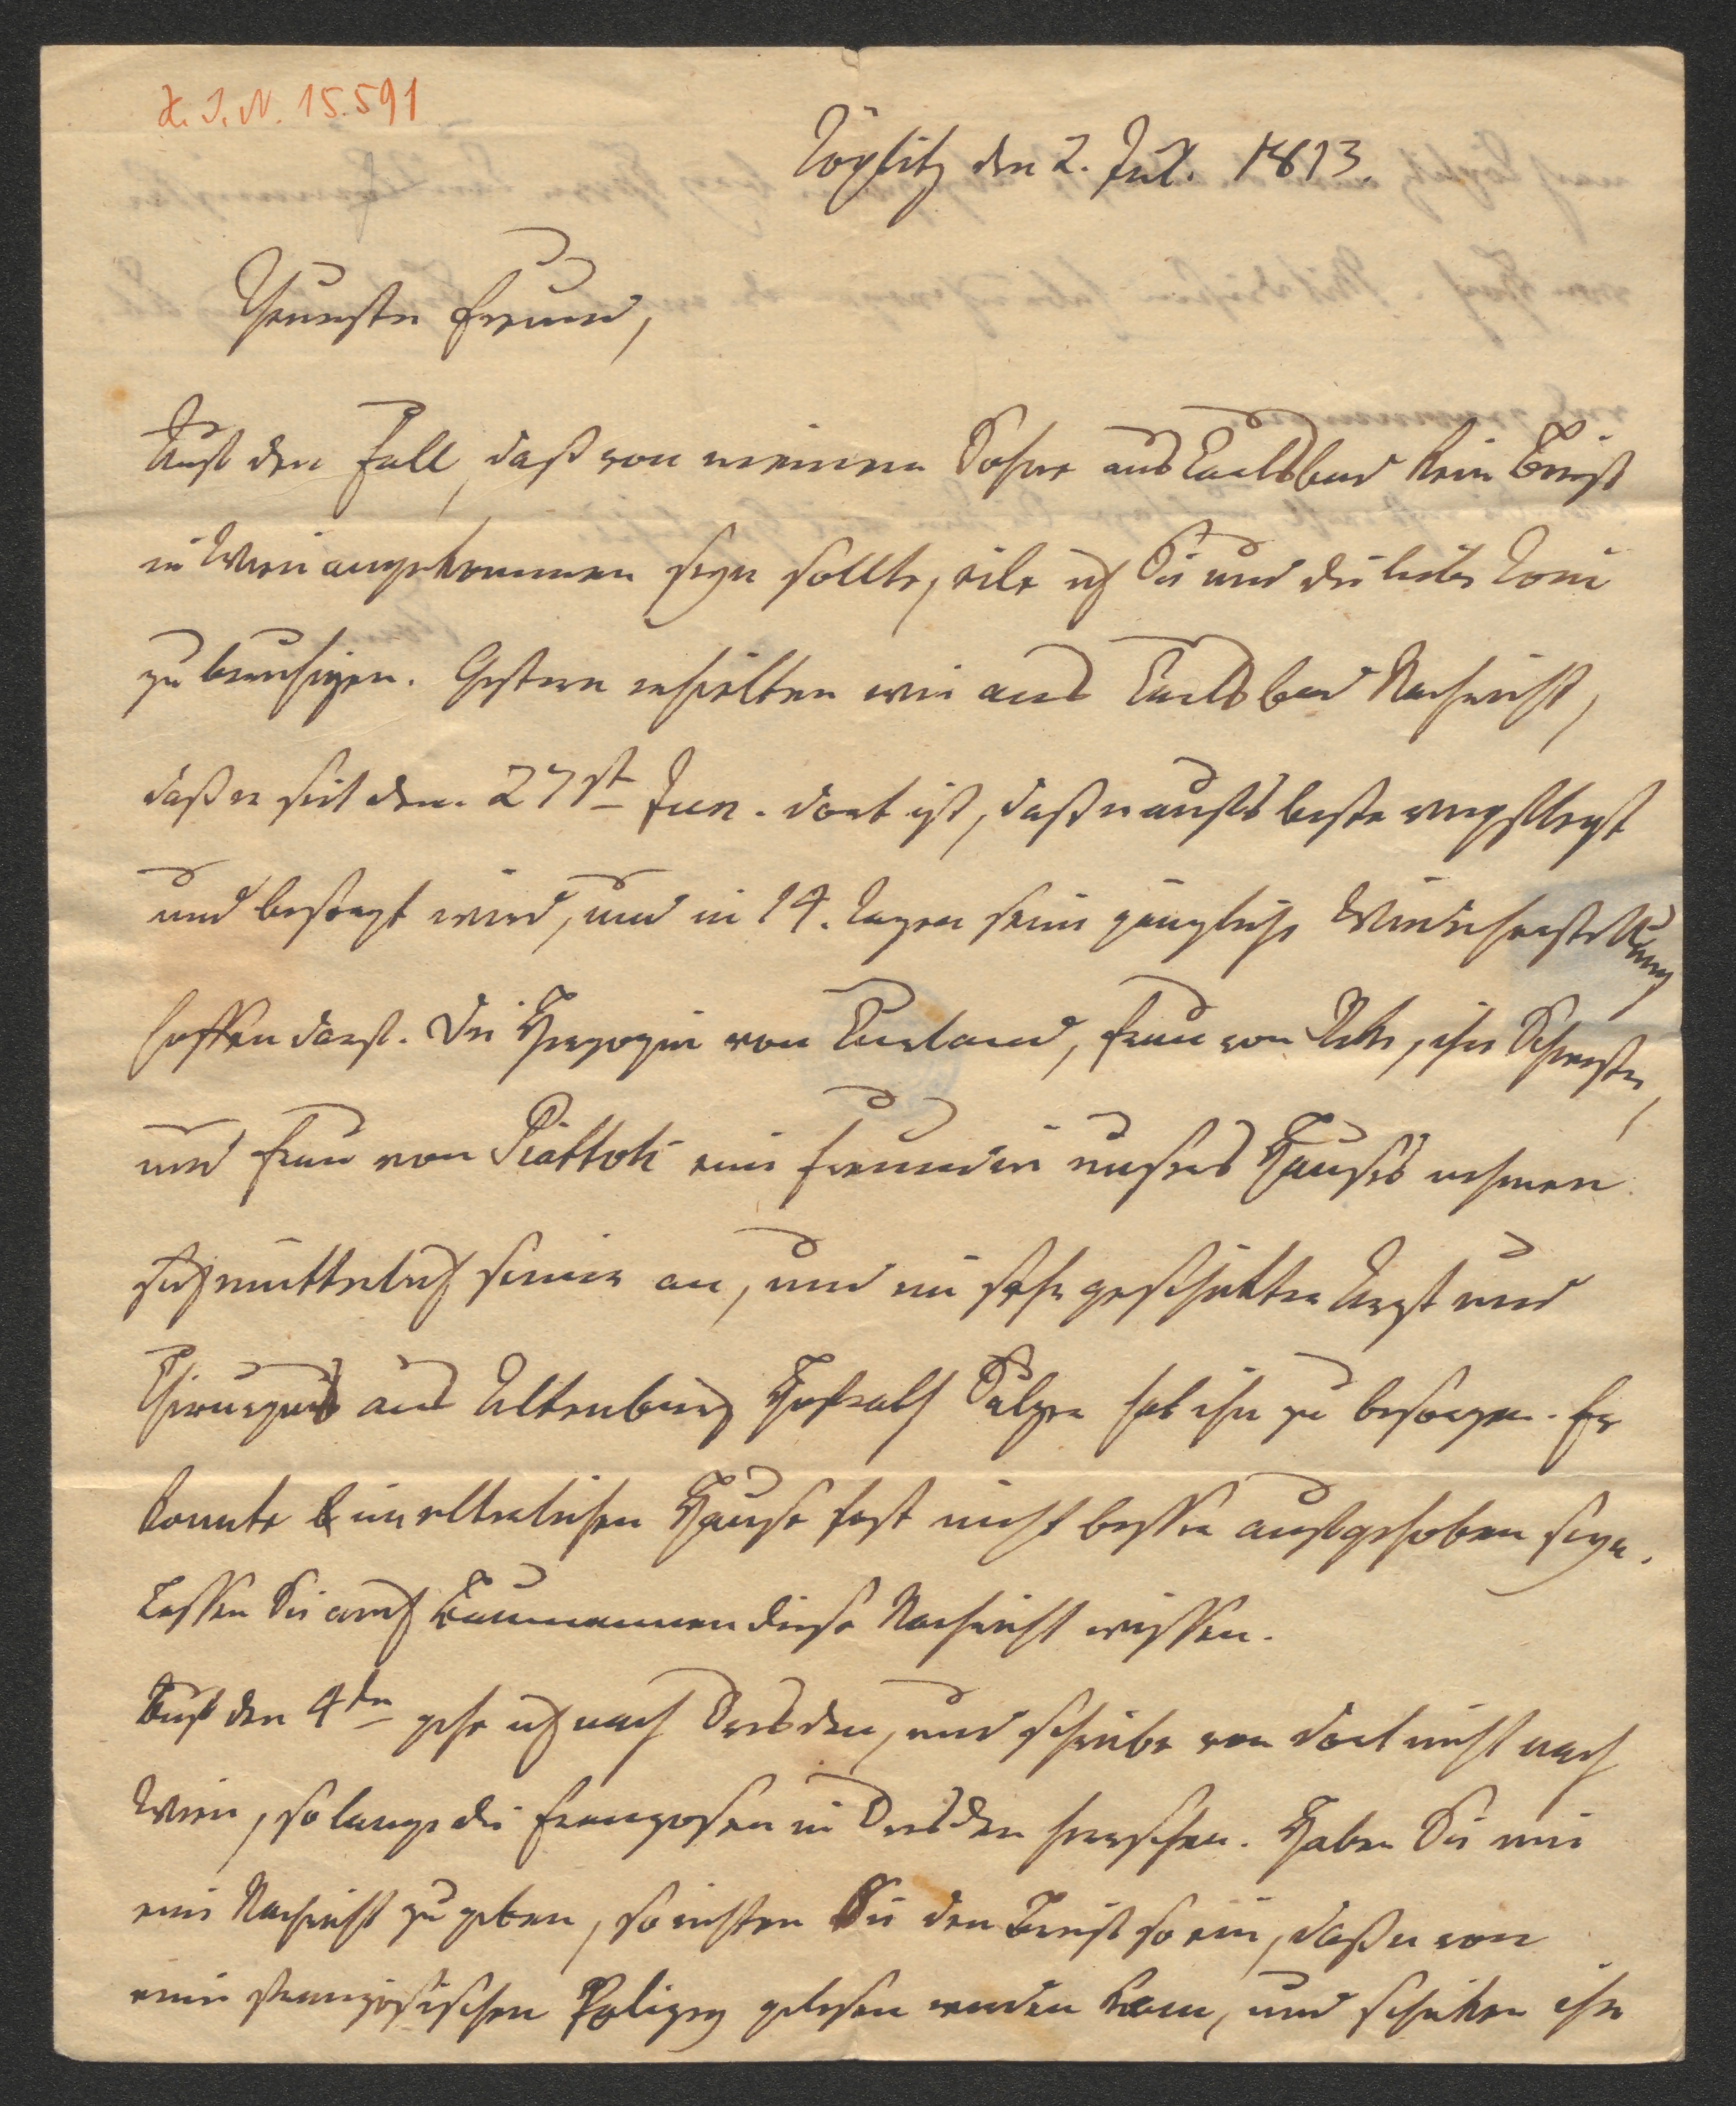 H. I. N. 15.591
Töplitz den 2. Jul. 1813.
Theurster Freund,
Auf den Fall, daß von meinem Sohne aus Carlsbad kein Brief
in Wien angekommen seyn sollte, eile ich Sie und die liebe Toni
zu beruhigen. Gestern erhielten wir aus Carlsbad Nachricht,
daß er seit dem 27st Jun. dort ist, daß er aufs beste verpflegt
und besorgt wird, und in 14. Tagen seine gänzliche Wiederherstellung
hoffen darf. Die Herzogin von Curland, Frau von Reke, ihre Schwester,
und Frau von Piattoli eine Freundin unsres Hauses nehmen
sich mütterlich seiner an, und ein sehr geschickter Arzt und
Chirurgus aus Altenburg Hofrath Sulzer hat ihn zu besorgen. Er
konnte im elterlichen Hause fast nicht besser aufgehoben seyn.
Lassen Sie auch diese Nachricht wissen.
Auf den 4ten gehe ich nach Dresden, und schreibe von dort nicht nach
Wien, so lange die Franzosen in Dresden herrschen. Haben Sie mir
eine Nachricht zu geben, so richten Sie den Brief so ein, daß er von
einer französischen Polizey gelesen werden kann, und schicken ihn